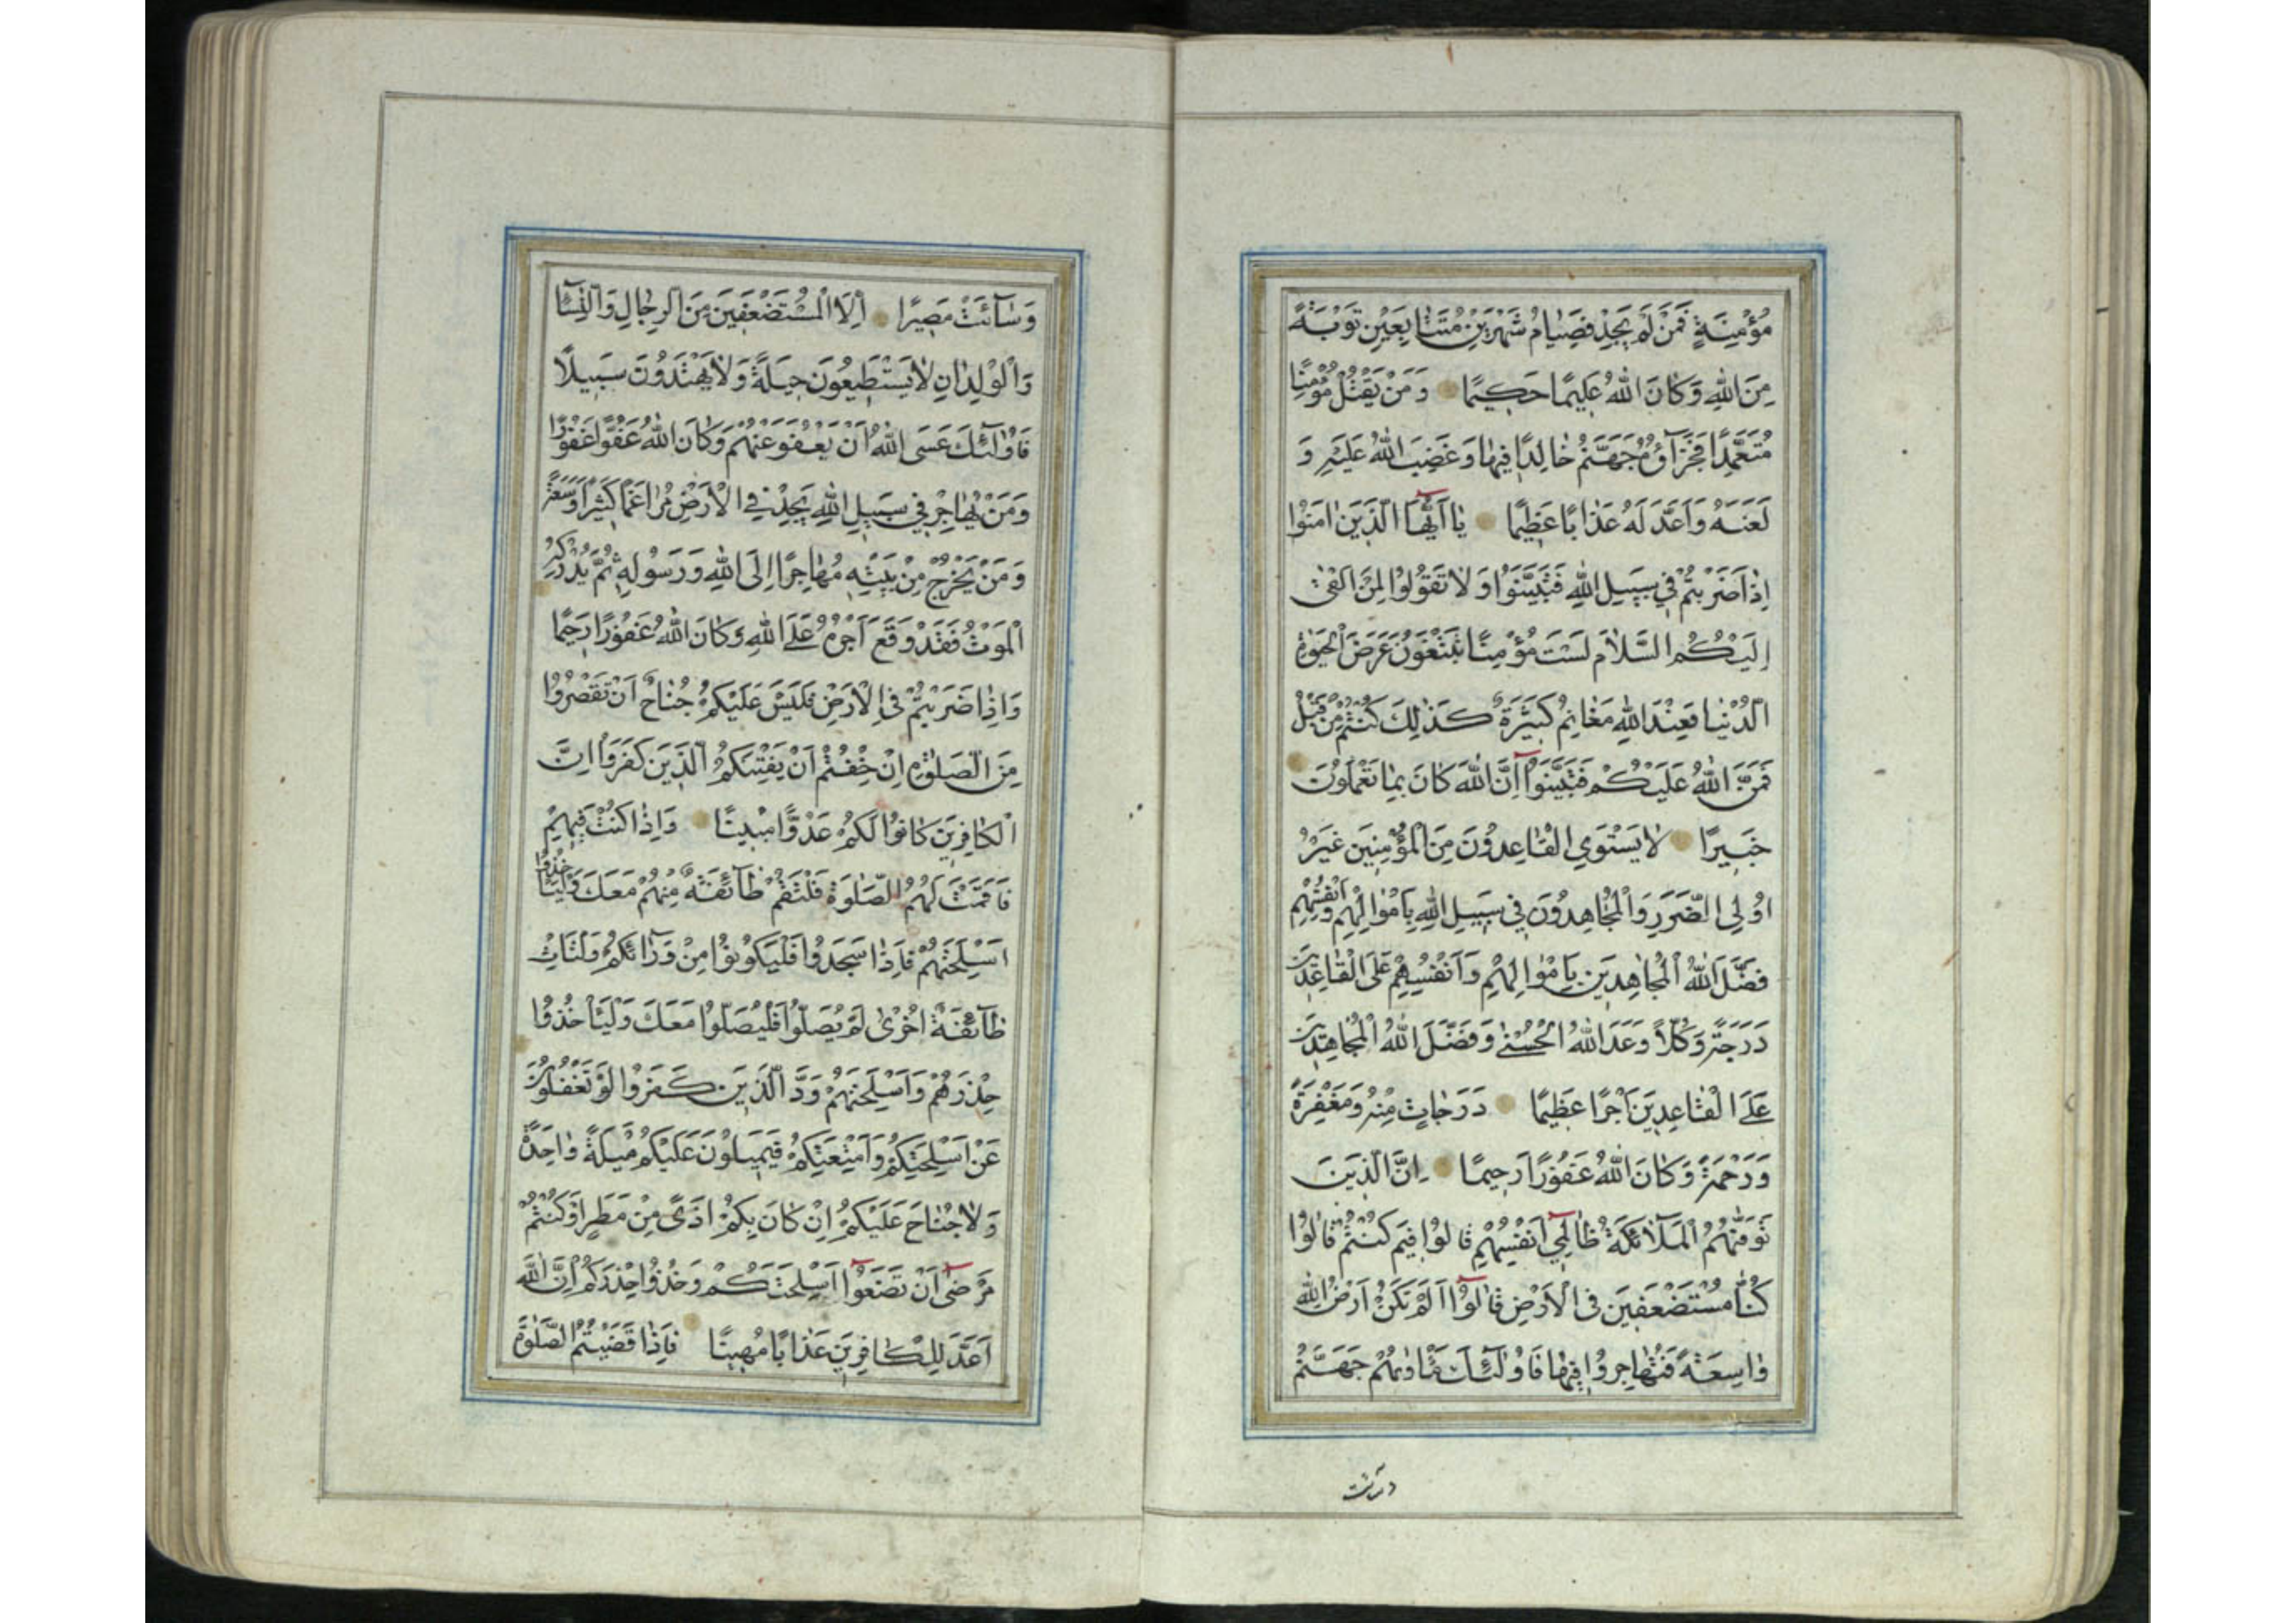 مُؤْمِنَةٍ فَمَنْ لَمْ يَجِدْ فَصِيَامُ شَهْرَيْنِ مُتَتَابِعَيْنِ تَوْبَةً
مِنَ اللهِ وَكَانَ اللهُ عَلِيمًا حَكِيمًا وَمَنْ يَقْتُلْ مُؤْمِنًا
مُتَعَمِّدًا فَجَزَآؤُهُ جَهَنَّمُ خَالِدًا فِيهَا وَغَضِبَ اللهُ عَلَيْهِ وَ
لَعَنَهُ وَاَعَدَّ لَهُ عَذَابًا عَظِيمًا يَا اَيُّهَا الَّذِينَ اٰمَنُوا
اِذَا ضَرَبْتُمْ فِي سَبِيلِ اللهِ فَتَبَيَّنُوا وَلَا تَقُولُوا لِمَنْ اَلْقٰى
اِلَيْكُمُ السَّلَامَ لَسْتَ مُؤْمِنًا تَبْتَغُونَ عَرَضَ الْحَيٰوةِ
الدُّنْيَا فَعِنْدَ اللهِ مَغَانِمُ كَثِيرَةٌ كَذٰلِكَ كُنْتُمْ مِنْ قَبْلُ
فَمَنَّ اللهُ عَلَيْكُمْ فَتَبَيَّنُوا اِنَّ اللهَ كَانَ بِمَا تَعْمَلُونَ
خَبِيرًا لَا يَسْتَوِي الْقَاعِدُونَ مِنَ الْمُؤْمِنِينَ غَيْرُ
اُولِي الضَّرَرِ وَالْمُجَاهِدُونَ فِي سَبِيلِ اللهِ بِاَمْوَالِهِمْ وَاَنْفُسِهِمْ
فَضَّلَ اللهُ الْمُجَاهِدِينَ بِاَمْوَالِهِمْ وَاَنْفُسِهِمْ عَلَى الْقَاعِدِينَ
دَرَجَةً وَكُلًّا وَعَدَ اللهُ الْحُسْنٰى وَفَضَّلَ اللهُ الْمُجَاهِدِينَ
عَلَى الْقَاعِدِينَ اَجْرًا عَظِيمًا دَرَجَاتٍ مِنْهُ وَمَغْفِرَةً
وَرَحْمَةً وَكَانَ اللهُ غَفُورًا رَحِيمًا اِنَّ الَّذِينَ
تَوَفّٰيهُمُ الْمَلَآئِكَةُ ظَالِمِي اَنْفُسِهِمْ قَالُوا فِيمَ كُنْتُمْ قَالُوا
كُنَّا مُسْتَضْعَفِينَ فِي الْاَرْضِ قَالُوا اَلَمْ تَكُنْ اَرْضُ اللهِ
وَاسِعَةً فَتُهَاجِرُوا فِيهَا فَاُولٰئِكَ مَأْوٰيهُمْ جَهَنَّمُ
وَسَآءَتْ مَصِيرًا اِلَّا الْمُسْتَضْعَفِينَ مِنَ الرِّجَالِ وَالنِّسَآءِ
وَالْوِلْدَانِ لَا يَسْتَطِيعُونَ حِيلَةً وَلَا يَهْتَدُونَ سَبِيلًا
فَاُولٰئِكَ عَسَى اللهُ اَنْ يَعْفُوَ عَنْهُمْ وَكَانَ اللهُ عَفُوًّا غَفُورًا
وَمَنْ يُهَاجِرْ فِي سَبِيلِ اللهِ يَجِدْ فِي الْاَرْضِ مُرَاغَمًا كَثِيرًا وَسَعَةً
وَمَنْ يَخْرُجْ مِنْ بَيْتِهِ مُهَاجِرًا اِلَى اللهِ وَرَسُولِهِ ثُمَّ يُدْرِكْهُ
الْمَوْتُ فَقَدْ وَقَعَ اَجْرُهُ عَلَى اللهِ وَكَانَ اللهُ غَفُورًا رَحِيمًا
وَاِذَا ضَرَبْتُمْ فِي الْاَرْضِ فَلَيْسَ عَلَيْكُمْ جُنَاحٌ اَنْ تَقْصُرُوا
مِنَ الصَّلٰوةِ اِنْ خِفْتُمْ اَنْ يَفْتِنَكُمُ الَّذِينَ كَفَرُوا اِنَّ
الْكَافِرِينَ كَانُوا لَكُمْ عَدُوًّا مُبِينًا وَاِذَا كُنْتَ فِيهِمْ
فَاَقَمْتَ لَهُمُ الصَّلٰوةَ فَلْتَقُمْ طَآئِفَةٌ مِنْهُمْ مَعَكَ وَلْيَأْخُذُوا
اَسْلِحَتَهُمْ فَاِذَا سَجَدُوا فَلْيَكُونُوا مِنْ وَرَآئِكُمْ وَلْتَأْتِ
طَآئِفَةٌ اُخْرٰى لَمْ يُصَلُّوا فَلْيُصَلُّوا مَعَكَ وَلْيَأْخُذُوا
حِذْرَهُمْ وَاَسْلِحَتَهُمْ وَدَّ الَّذِينَ كَفَرُوا لَوْ تَغْفُلُونَ
عَنْ اَسْلِحَتِكُمْ وَاَمْتِعَتِكُمْ فَيَمِيلُونَ عَلَيْكُمْ مَيْلَةً وَاحِدَةً
وَلَا جُنَاحَ عَلَيْكُمْ اِنْ كَانَ بِكُمْ اَذًى مِنْ مَطَرٍ اَوْ كُنْتُمْ
مَرْضٰى اَنْ تَضَعُوا اَسْلِحَتَكُمْ وَخُذُوا حِذْرَكُمْ اِنَّ اللهَ
اَعَدَّ لِلْكَافِرِينَ عَذَابًا مُهِينًا فَاِذَا قَضَيْتُمُ الصَّلٰوةَ